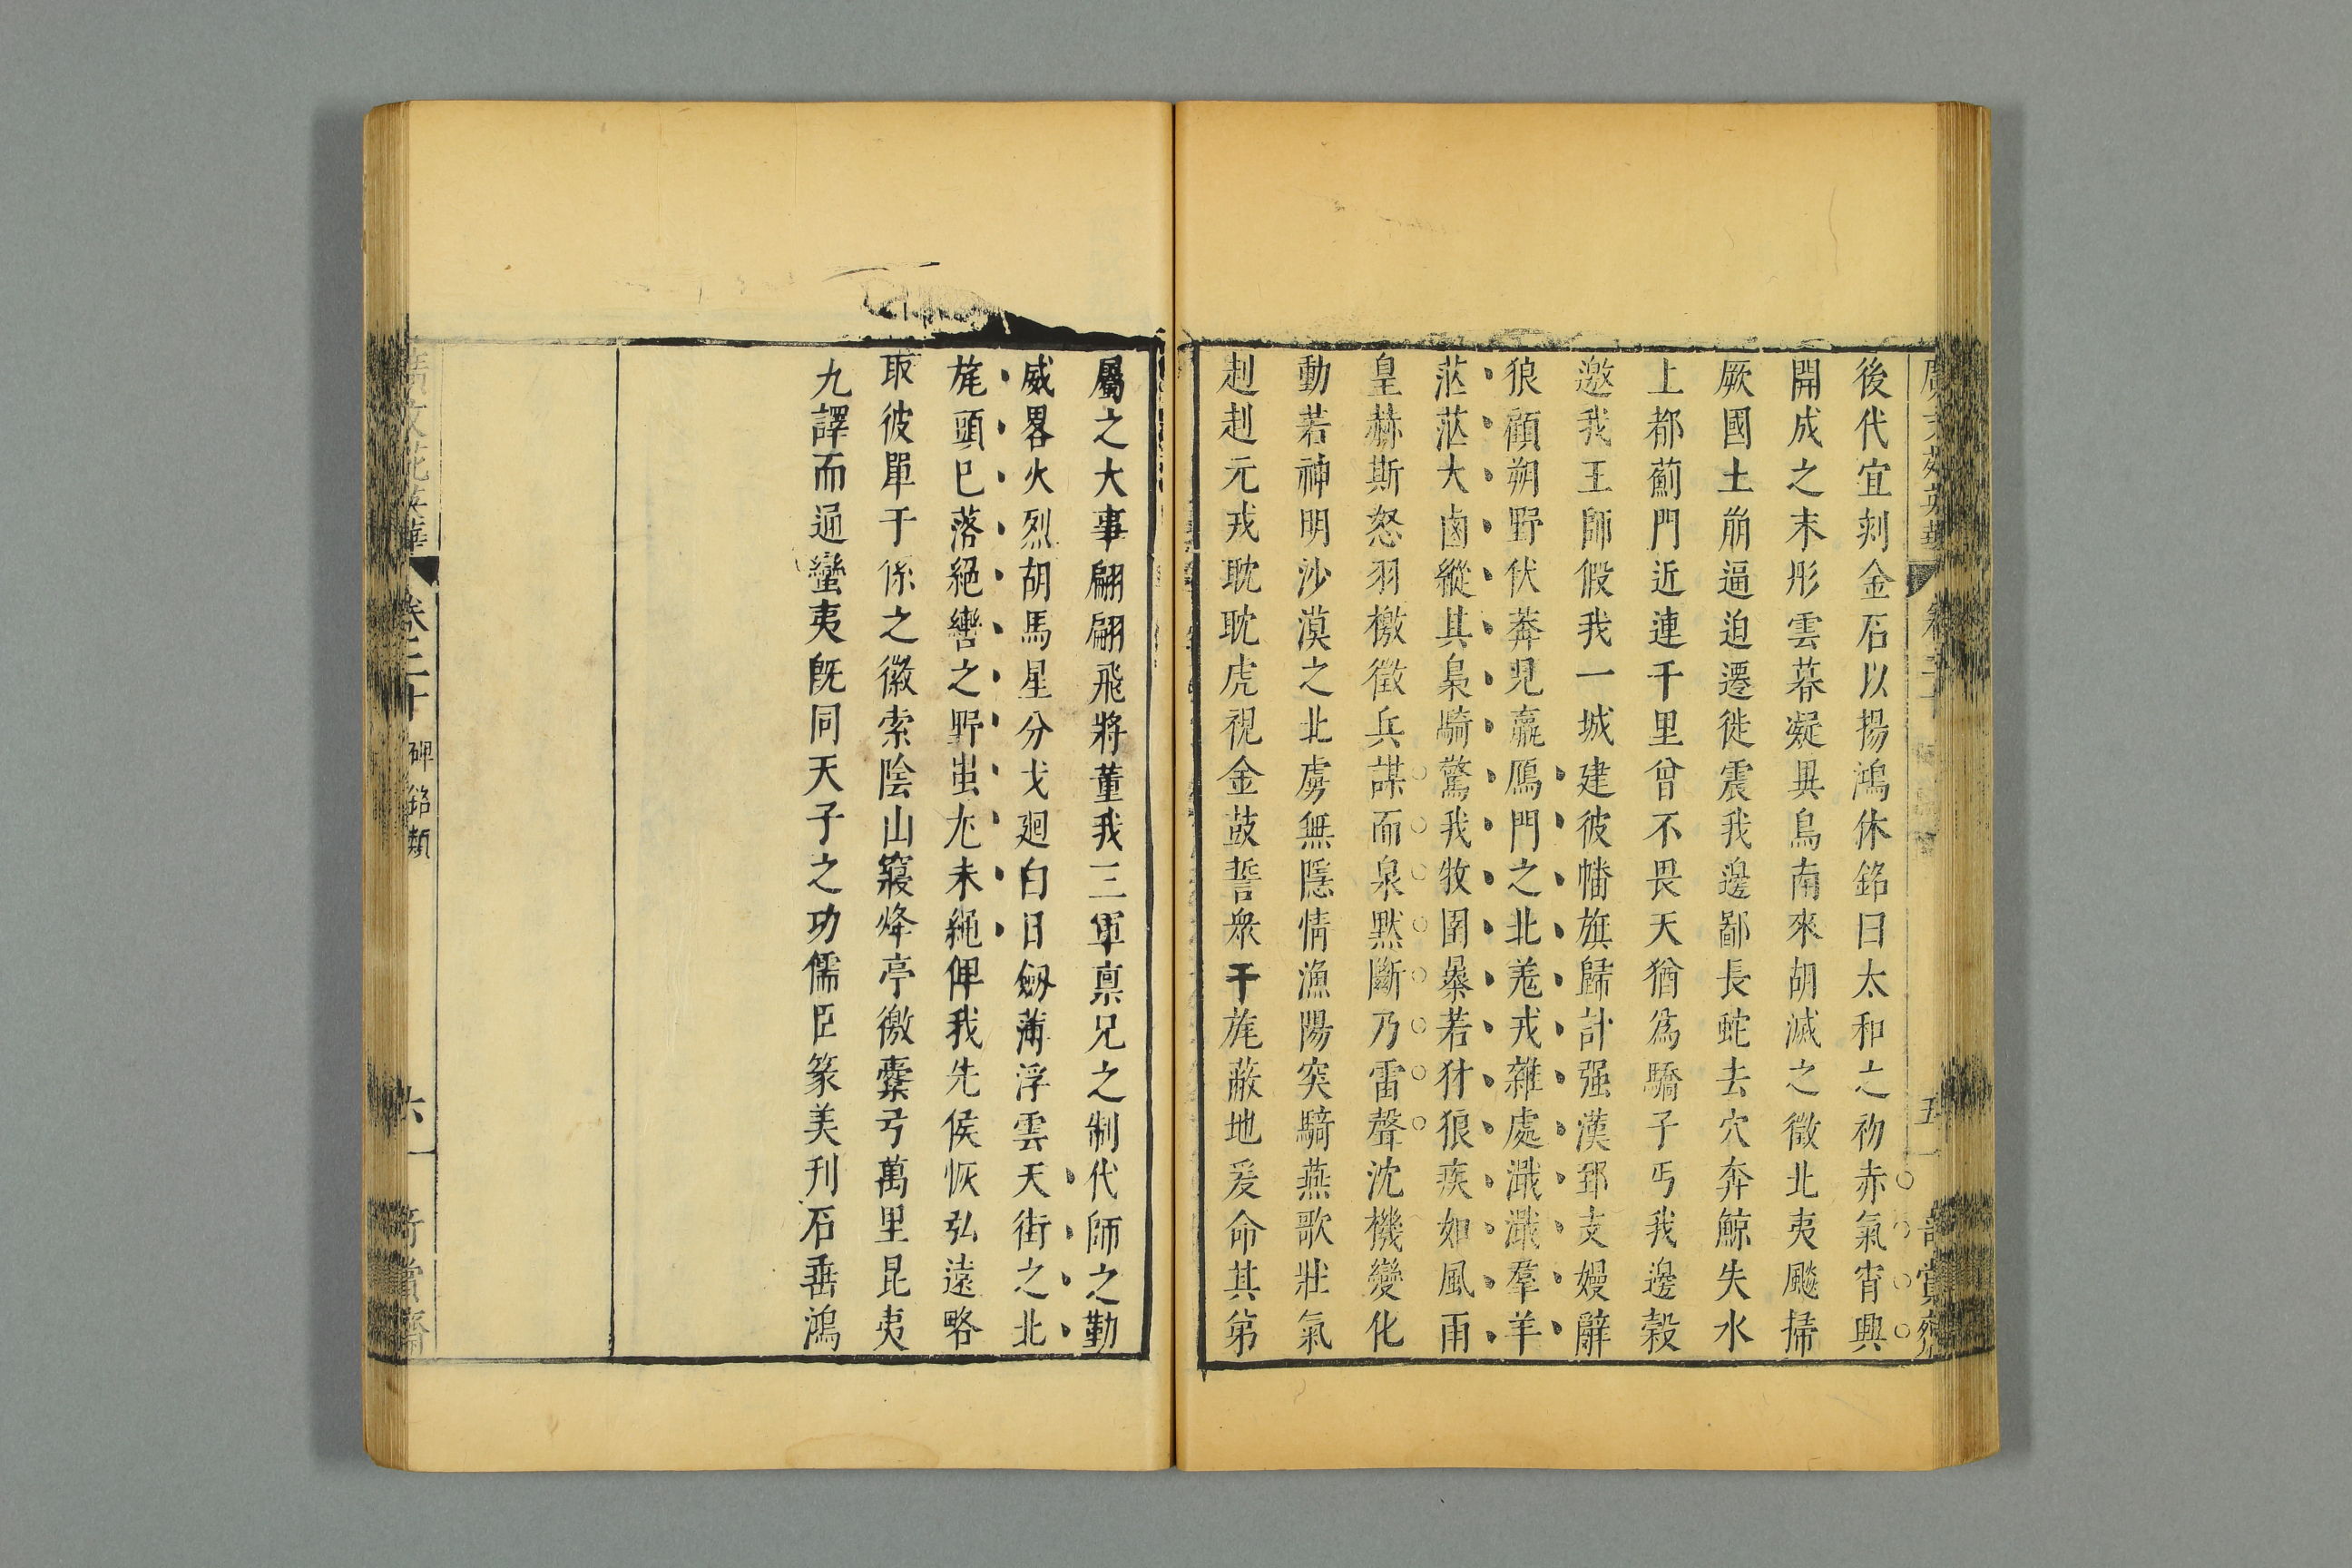 後代宜刻金石以揚鴻休銘曰太和之初赤氣宵興
開成之末彤雲暮凝異鳥南來胡滅之徵北夷飈掃
厥國土崩逼迫遷徙震我邊鄙長蛇去穴奔鯨失水
上都薊門近連千里曾不畏天猶為驕子丐我邊穀
邀我王師假我一城建彼幡旗歸計强漢郅支嫚辭
狼顧朔野伏莽見羸鴈門之北羗戎雜處濈濈羣羊
茫茫大鹵縱其梟騎驚我牧圉暴若豺狼疾如風雨
皇赫斯怒羽檄徵兵謀而泉默斷乃雷聲沈機變化
動若神明沙漠之北虜無隱情漁陽突騎燕歌壯氣
赳赳元戎耽耽虎視金鼓誓衆干旄蔽地爰命其第
屬之大事翩翩飛將董我三軍稟兄之制代師之勤
威畧火烈胡馬星分戈廻白日劔薄浮雲天街之北
旄頭已落絕轡之野蚩尤未縛俾我先侯恢弘遠略
取彼單于係之徽索陰山寢烽亭徼櫜弓萬里昆夷
九譯而通蠻夷旣同天子之功儒臣篆美刋石垂鴻
廣文苑英華 卷二十 碑銘類 六 奇賞齋